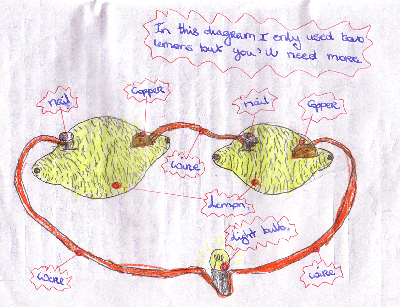 In this diagram I only used two
lemons but you'll need more
nail
Copper
nail
Copper
wire
Lemon
light bulb.
wire
wire